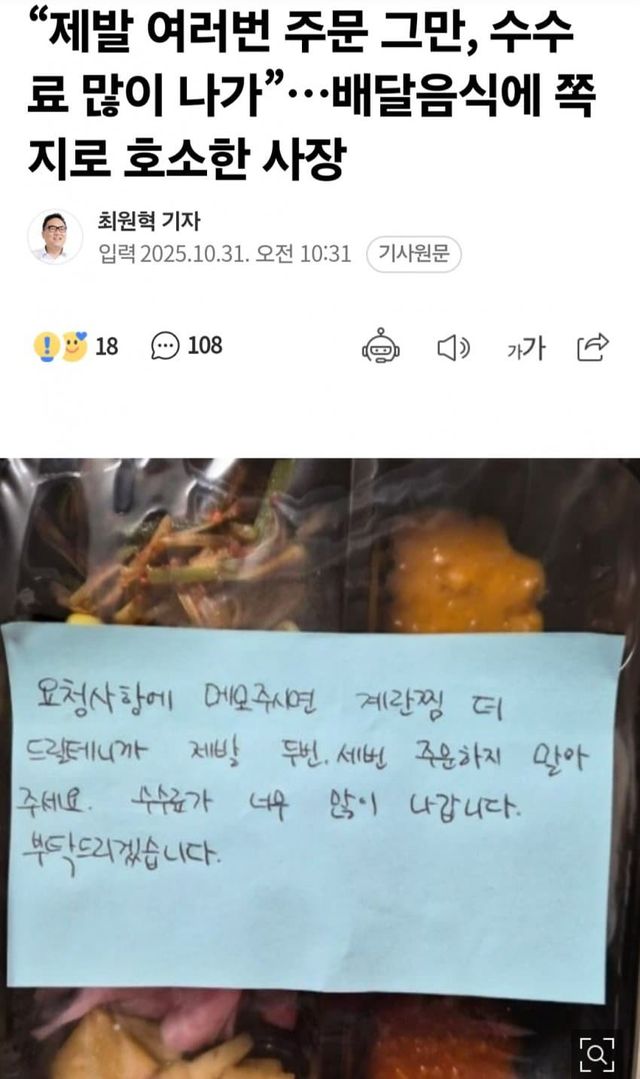 “제발 여러번 주문 그만, 수수
료 많이 나가”…배달음식에 쪽
지로 호소한 사장
최원혁 기자
입력 2025.10.31. 오전 10:31 기사원문
18 108
가가
요청사항에 메모주시면 계란찜 더
드릴테니까 제발 두번.세번 주문하지 말아
주세요. 수수료가 너무 많이 나갑니다.
부탁드리겠습니다.